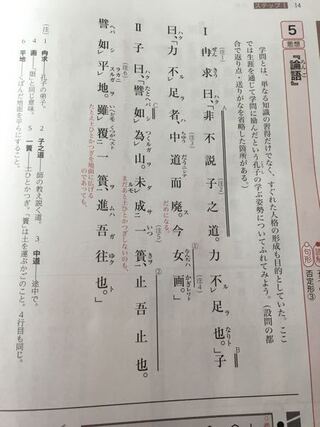 ステップ1 14
5
思想
『論語』
学問とは、単なる知識の習得だけでなく、すぐれた人格の形成も目的としていた。ここ
では生涯を通じて学問に励んだという孔子の学ぶ姿勢についてふれてみよう。(設問の都
合で返り点・送りがなを省略した箇所がある。)
句形
否定形③
Ⅰ 冉求曰、「非不説子之道。力不足也。」子
曰、「力不足者、中道而廃。今女画。」
だめになる。
Ⅱ 子曰、「譬如為山。未成一簣、止吾止也。
まだあと土ひとかつぎしないのも、
譬如平地。雖覆一簣、進吾往也。」
たとえ土ひとかつぎを地面に広げる
のであっても、
(注) 1 冉求――孔子の弟子。 2 子之道――師の教え説く道。 3 中道――途中で。
4 画――「限」と同じ意味。 5 一簣――土ひとかつぎ。「簣」は土を運ぶかごのこと。4行目も同じ。
6 平地――くぼんだ地面を平らにすること。